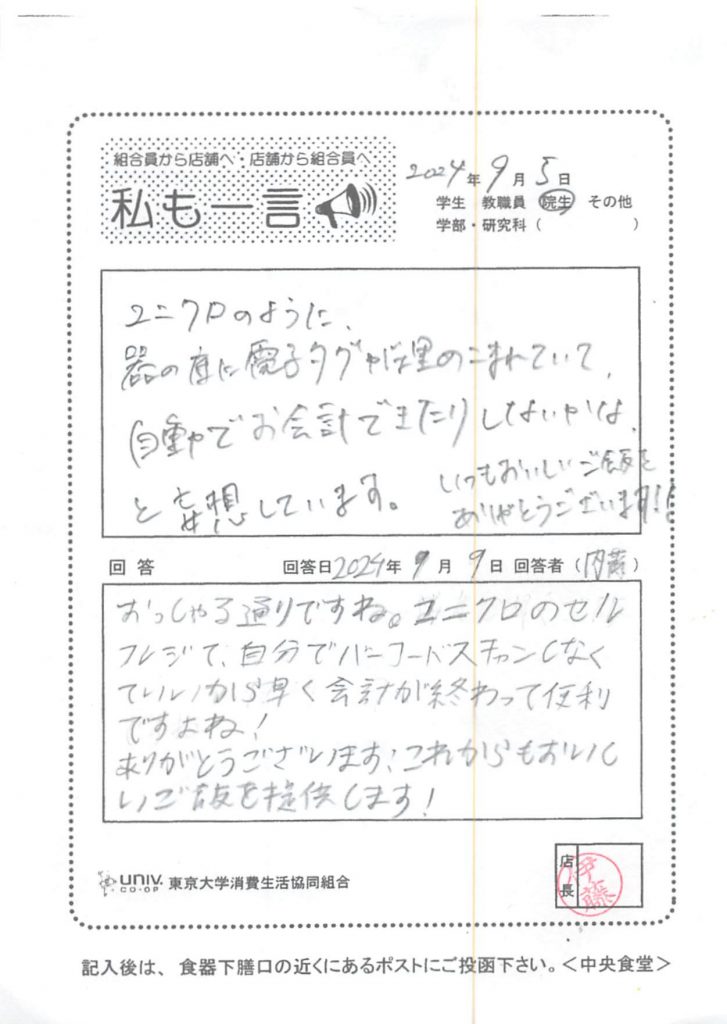 組合員から店舗へ・店舗から組合員へ
私も一言
2024年9月5日
学生 教職員 院生 その他
学部・研究科( )
ユニクロのように、
器の底に電子タグが埋めこまれていて、
自動でお会計できたりしないかな、
と妄想しています。
いつもおいしいご飯を
ありがとうございます!!
回答 回答日2024年9月9日 回答者(内藤)
おっしゃる通りですね。ユニクロのセル
フレジて、自分でバーコードスキャンしなく
ていいから早く会計が終わって便利
ですよね!
ありがとうございます!これからもおいし
いご飯を提供します!
UNIV.
CO-OP
東京大学消費生活協同組合
店長
伊藤
記入後は、食器下膳口の近くにあるポストにご投函下さい。<中央食堂>